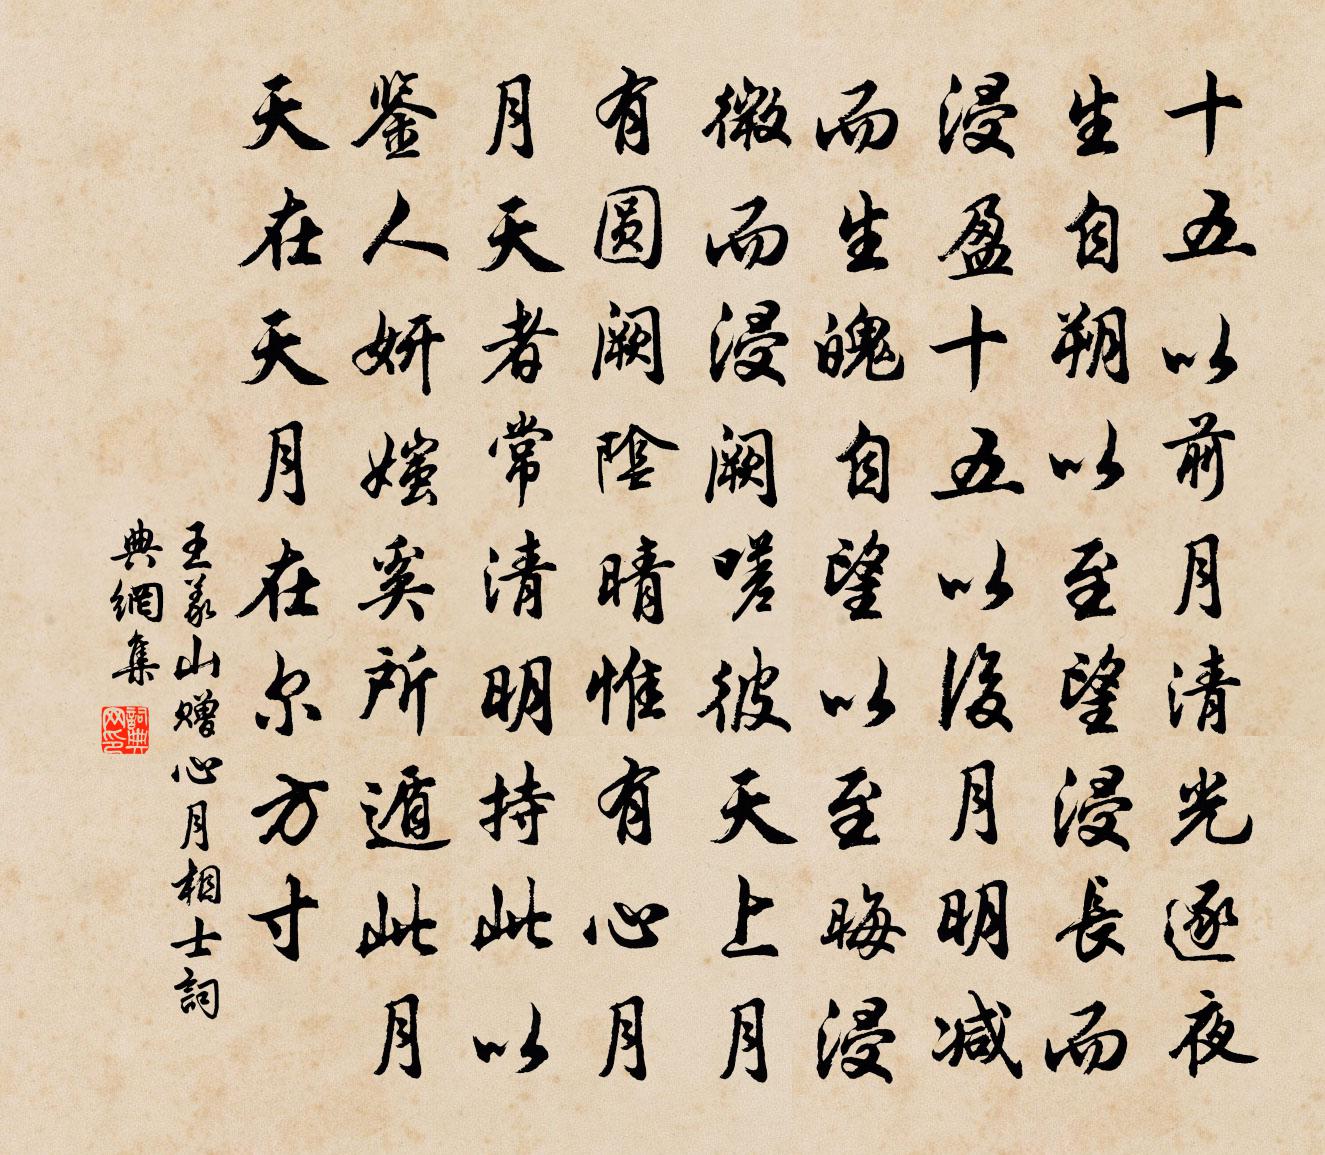 十五以前月清光逐夜
生自朔以至望浸長而
浸盈十五以後月明减
而生魄自望以至晦浸
微而浸闕嗟彼天上月
有圆闕陰晴惟有心月
月天者常清明持此以
鉴人妍媸奚所遁此月
天在天月在尔方寸
王義山贈心月相士詞
典網集
詞典
网印